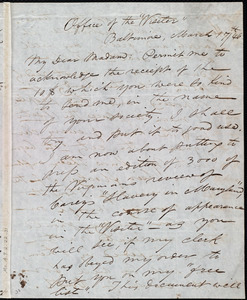 Office of the Visiter
Baltimore, March 17th
My dear Madam: Permit me to
acknowledge the receipt of the
10$ which you were so kind
to send me, in the name
of your society. I shall
try and put it to good use.
I am now about putting to
press an edition of 3000 of
the Virginians review of
Careys "Slavery in Maryland"
in the course of appearance
in the "Visiter" — as you
will see, if my clerk
has obeyed my order to
put you on my "free
list". This document will